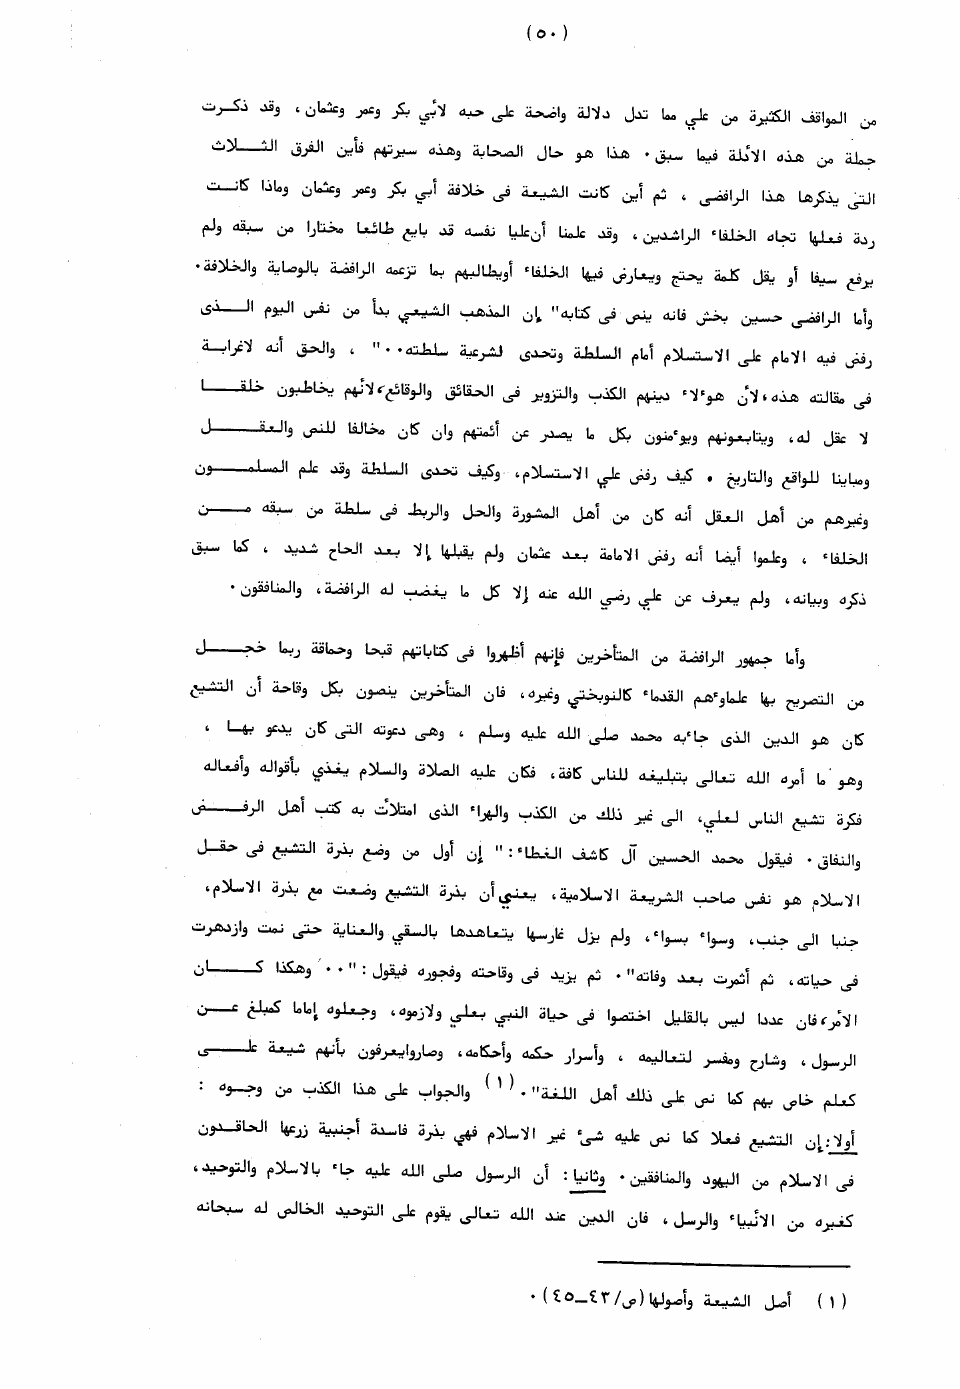 (٥٠)
من المواقف الكثيرة من علي مما تدل دلالة واضحة على حبه لأبي بكر وعمر وعثمان، وقد ذكرت
جملة من هذه الأدلة فيما سبق. هذا هو حال الصحابة وهذه سيرتهم فأين الفرق الثلاث
التي يذكرها هذا الرافضى ، ثم أين كانت الشيعة فى خلافة أبي بكر وعمر وعثمان وماذا كانت
ردة فعلها تجاه الخلفاء الراشدين، وقد علمنا أن عليا نفسه قد بايع طائعا مختارا من سبقه ولم
يرفع سيفا أو يقل كلمة يحتج ويعارض فيها الخلفاء أويطالبهم بما تزعمه الرافضة بالوصاية والخلافة.
وأما الرافضى حسين بخش فانه ينص فى كتابه" إن المذهب الشيعي بدأ من نفس اليوم الذى
رفض فيه الامام على الاستسلام أمام السلطة وتحدى لشرعية سلطته.." ، والحق أنه لاغرابة
فى مقالته هذه، لأن هؤلاء دينهم الكذب والتزوير فى الحقائق والوقائع، لأنهم يخاطبون خلقا
لا عقل له، ويتابعونهم ويؤمنون بكل ما يصدر عن أئمتهم وان كان مخالفا للنص والعقل
ومباينا للواقع والتاريخ . كيف رفض علي الاستسلام، وكيف تحدى السلطة وقد علم المسلمون
وغيرهم من أهل العقل أنه كان من أهل المشورة والحل والربط فى سلطة من سبقه من
الخلفاء ، وعلموا أيضا أنه رفض الامامة بعد عثمان ولم يقبلها إلا بعد الحاح شديد ، كما سبق
ذكره وبيانه، ولم يعرف عن علي رضي الله عنه إلا كل ما يغضب له الرافضة، والمنافقون.
وأما جمهور الرافضة من المتأخرين فإنهم أظهروا فى كتاباتهم قبحا وحماقة ربما خجل
من التصريح بها علماؤهم القدماء كالنوبختي وغيره، فان المتأخرين ينصون بكل وقاحة أن التشيع
كان هو الدين الذى جاء به محمد صلى الله عليه وسلم ، وهى دعوته التى كان يدعو بها ،
وهو ما أمره الله تعالى بتبليغه للناس كافة، فكان عليه الصلاة والسلام يغذي بأقواله وأفعاله
فكرة تشيع الناس لعلي، الى غير ذلك من الكذب والهراء الذى امتلأت به كتب أهل الرفض
والنفاق. فيقول محمد الحسين آل كاشف الغطاء:" إن أول من وضع بذرة التشيع فى حقل
الاسلام هو نفس صاحب الشريعة الاسلامية، يعني أن بذرة التشيع وضعت مع بذرة الاسلام،
جنبا الى جنب، وسواء بسواء، ولم يزل غارسها يتعاهدها بالسقي والعناية حتى نمت وازدهرت
فى حياته، ثم أثمرت بعد وفاته". ثم يزيد فى وقاحته وفجوره فيقول:".. وهكذا كان
الأمر، فان عددا ليس بالقليل اختصوا فى حياة النبي بعلي ولازموه، وجعلوه إماما كمبلغ عن
الرسول، وشارح ومفسر لتعاليمه ، وأسرار حكمه وأحكامه، وصاروايعرفون بأنهم شيعة على
كعلم خاص بهم كما نص على ذلك أهل اللغة".(١) والجواب على هذا الكذب من وجوه :
أولا: إن التشيع فعلا كما نص عليه شئ غير الاسلام فهي بذرة فاسدة أجنبية زرعها الحاقدون
فى الاسلام من اليهود والمنافقين. وثانيا: أن الرسول صلى الله عليه جاء بالاسلام والتوحيد،
كغيره من الأنبياء والرسل، فان الدين عند الله تعالى يقوم على التوحيد الخالص له سبحانه
(١) أصل الشيعة وأصولها(ص/٤٣_٤٥).